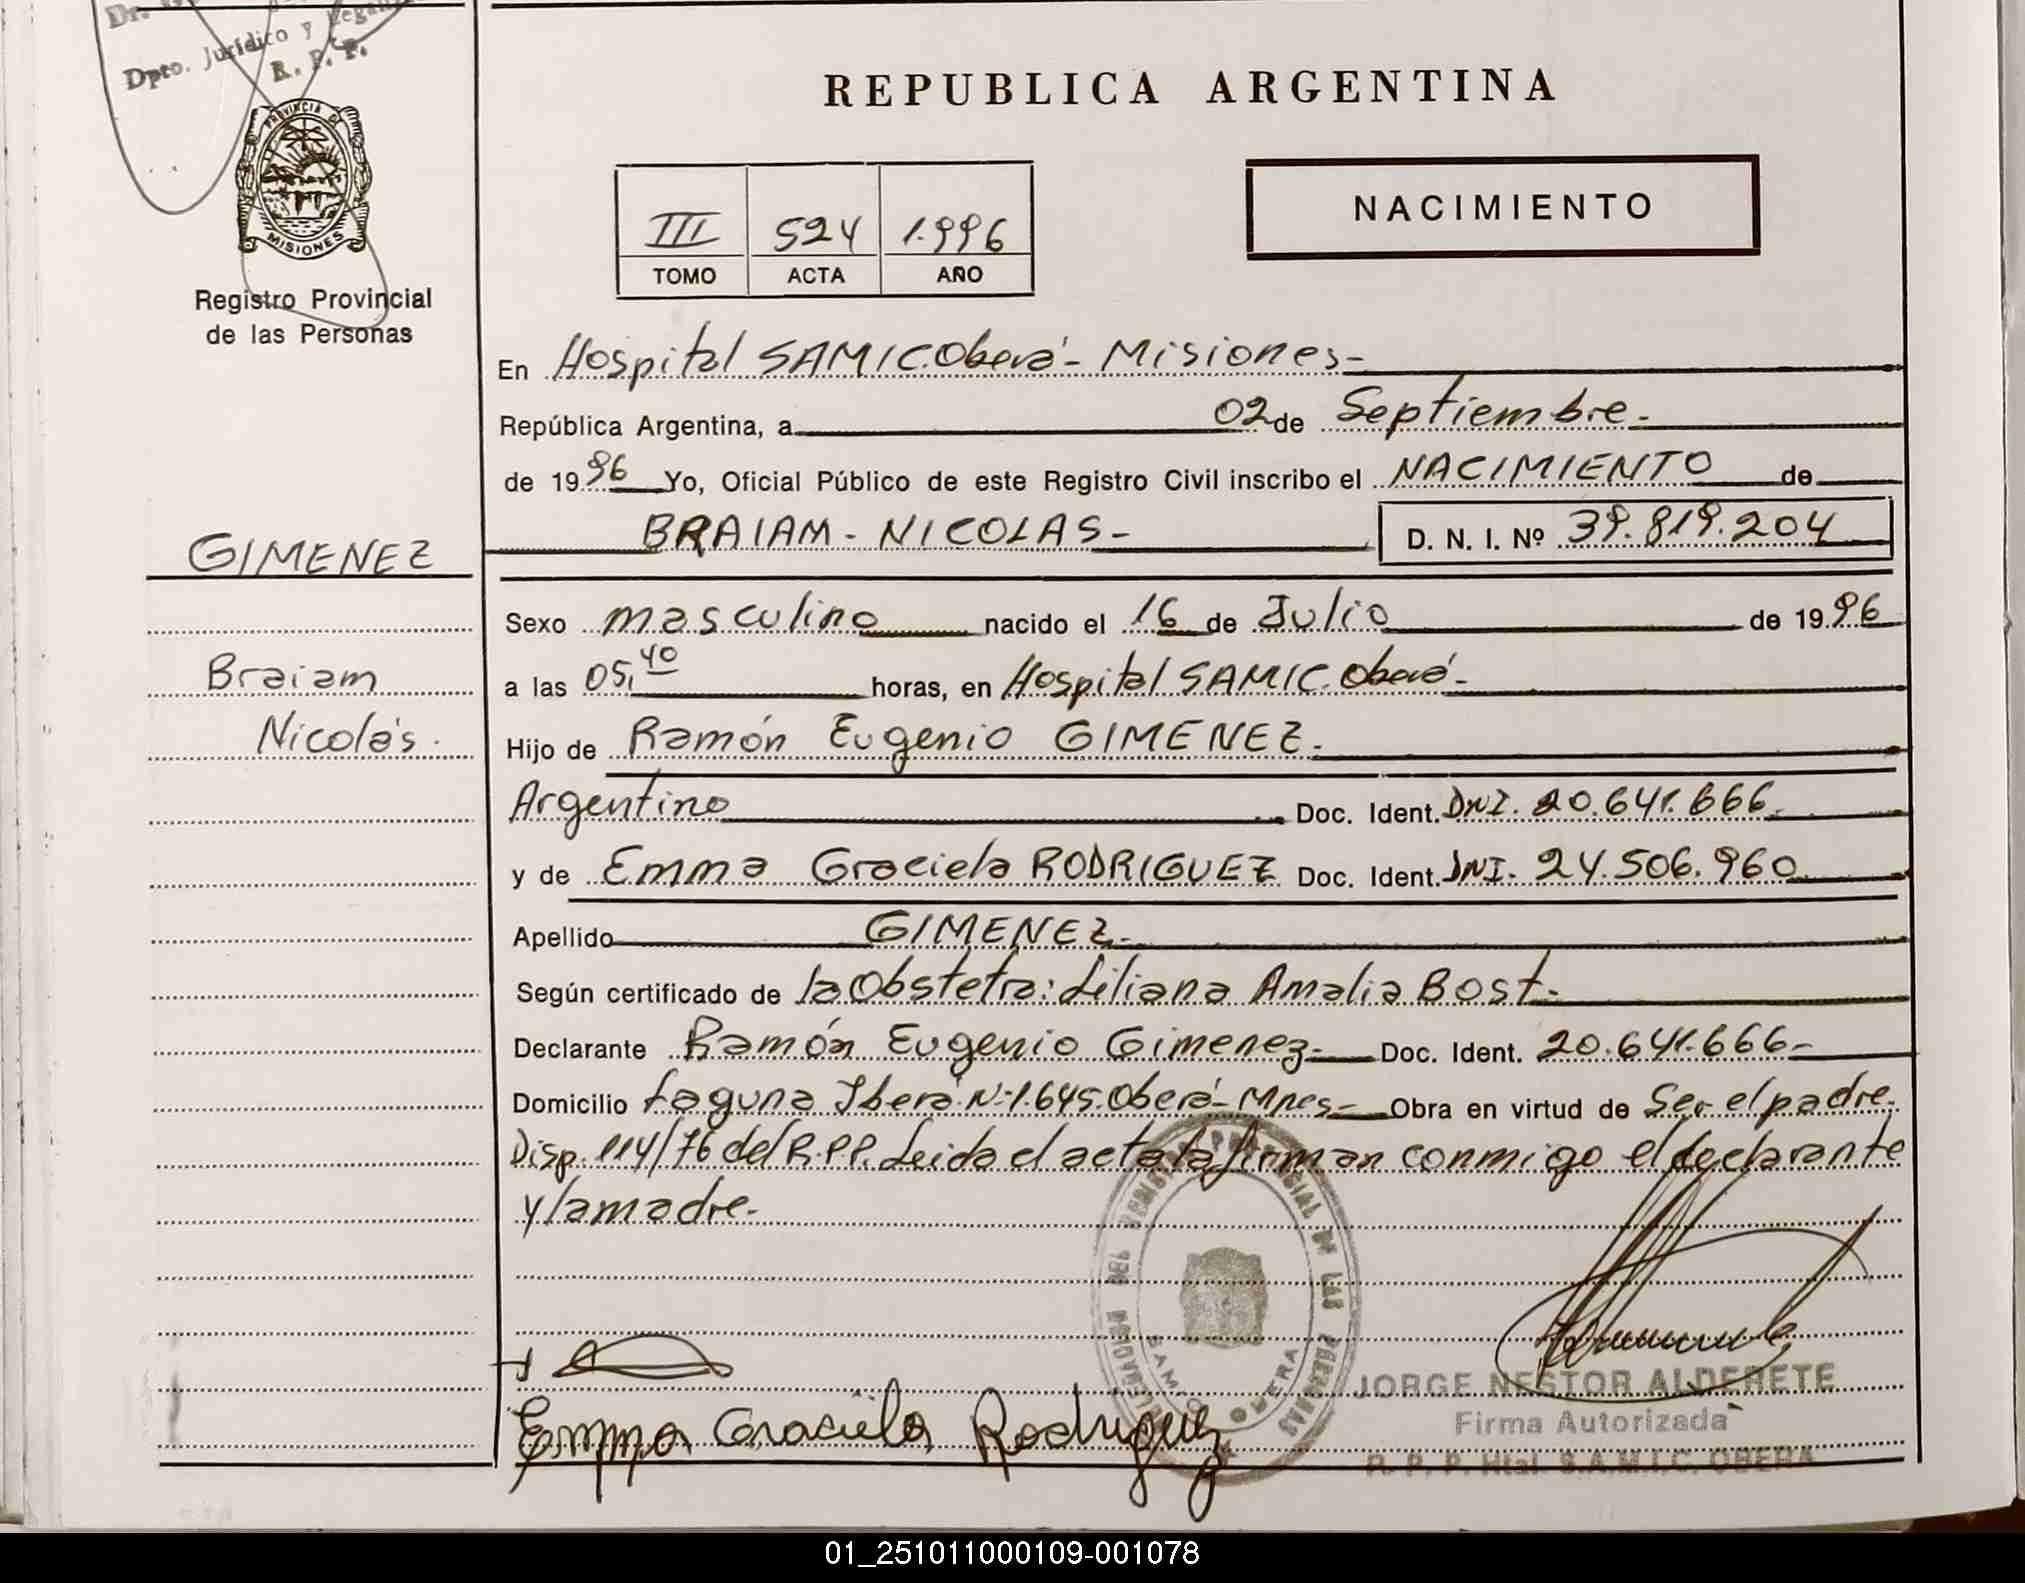 Dr.
Dpto. Jurídico y Legal
R. P. P.
PROVINCIA DE
MISIONES
Registro Provincial
de las Personas
REPUBLICA ARGENTINA
NACIMIENTO
III 524 1.996
TOMO ACTA AÑO
En Hospital SAMIC. Oberá - Misiones -
República Argentina, a 02 de Septiembre -
de 1996 Yo, Oficial Público de este Registro Civil inscribo el NACIMIENTO de
BRAIAM - NICOLAS - D. N. I. Nº 39.819.204
GIMENEZ
Braiam
Nicolás.
Sexo masculino nacido el 16 de Julio de 1996
a las 05,40 horas, en Hospital SAMIC. Oberá -
Hijo de Ramón Eugenio GIMENEZ -
Argentino Doc. Ident. DNI. 20.641.666
y de Emma Graciela RODRIGUEZ Doc. Ident. DNI. 24.506.960
Apellido GIMENEZ -
Según certificado de la Obstetra: Liliana Amalia Bost -
Declarante Ramón Eugenio Gimenez - Doc. Ident. 20.641.666 -
Domicilio Laguna Iberá Nº 1.645. Oberá - Mnes - Obra en virtud de Ser el padre.
Disp. 114/76 del R.P.P. Leida el acta la firman conmigo el declarante
y la madre -
PROVINCIAL DE LAS PERSONAS
SAMIC OBERA
Emma Graciela Rodriguez
JORGE NESTOR ALDERETE
Firma Autorizada
R. P. P. Htal. S.A.M.I.C. OBERA
01_251011000109-001078